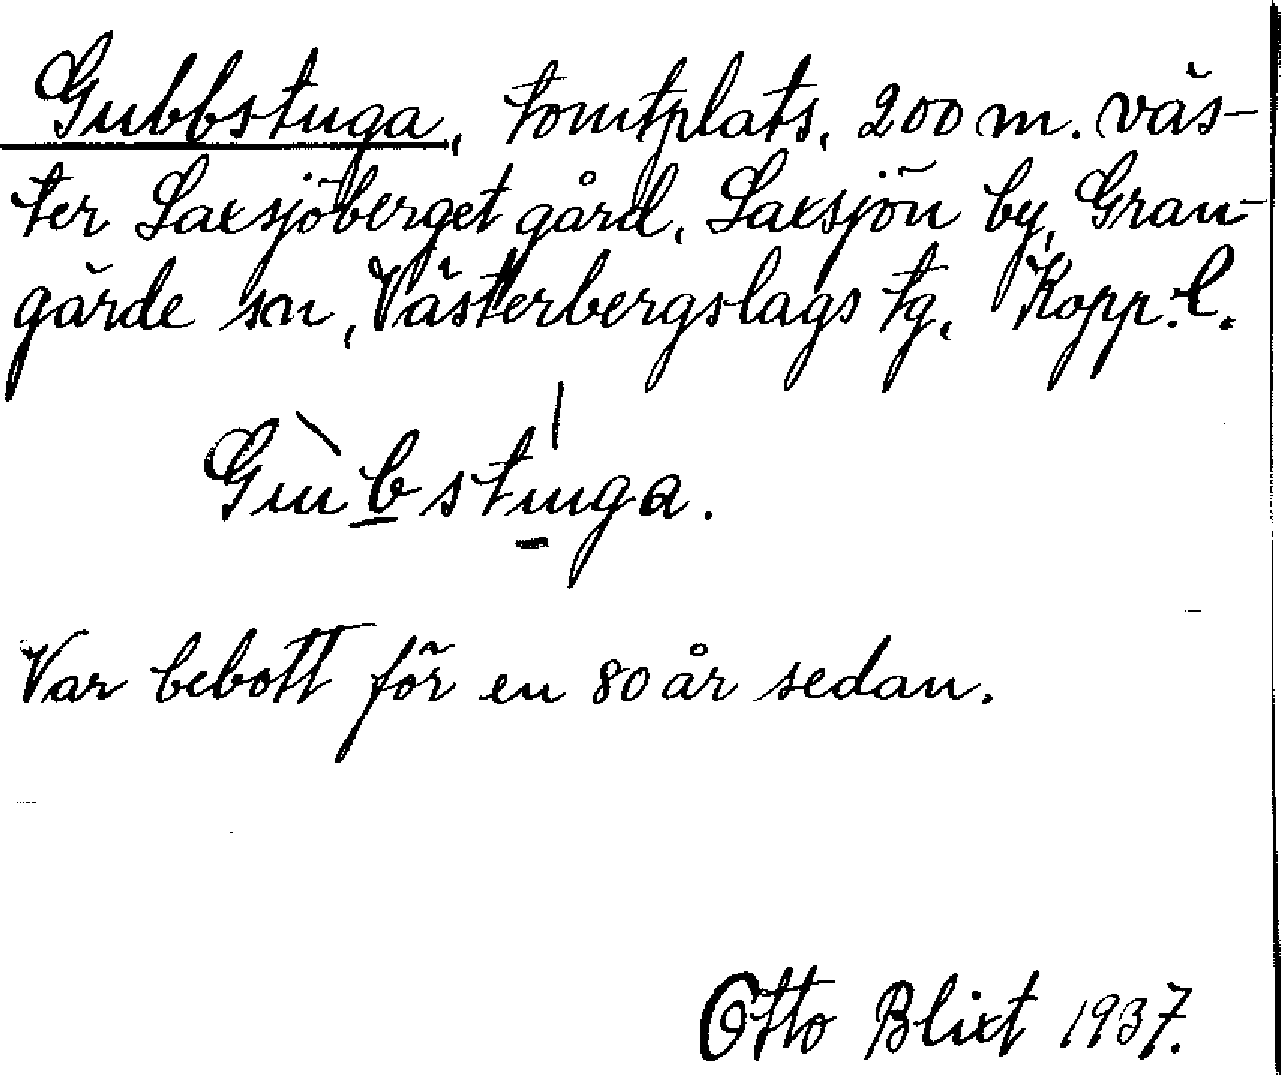 Gubbstuga, tomtplats, 200 m. väs-
ter Saxsjöberget gård, Saxsjön by, Gran-
gärde sn, Västerbergslags tg, Kopp. l.
Gùbstuga.
Var bebott för en 80 år sedan.
Otto Blixt 1937.